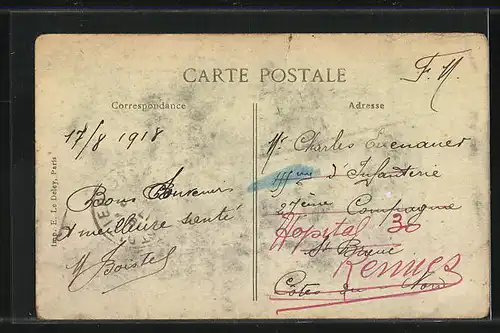 CARTE POSTALE
F. M.
Correspondance
Adresse
17/8 1918
Bons Souvenirs
& meilleure santé
Mr Charles
d'Infanterie
27ème Compagnie
Hopital 30
St Brieuc
Rennes
Côtes du Nord
Imp. E. Le Deley, Paris